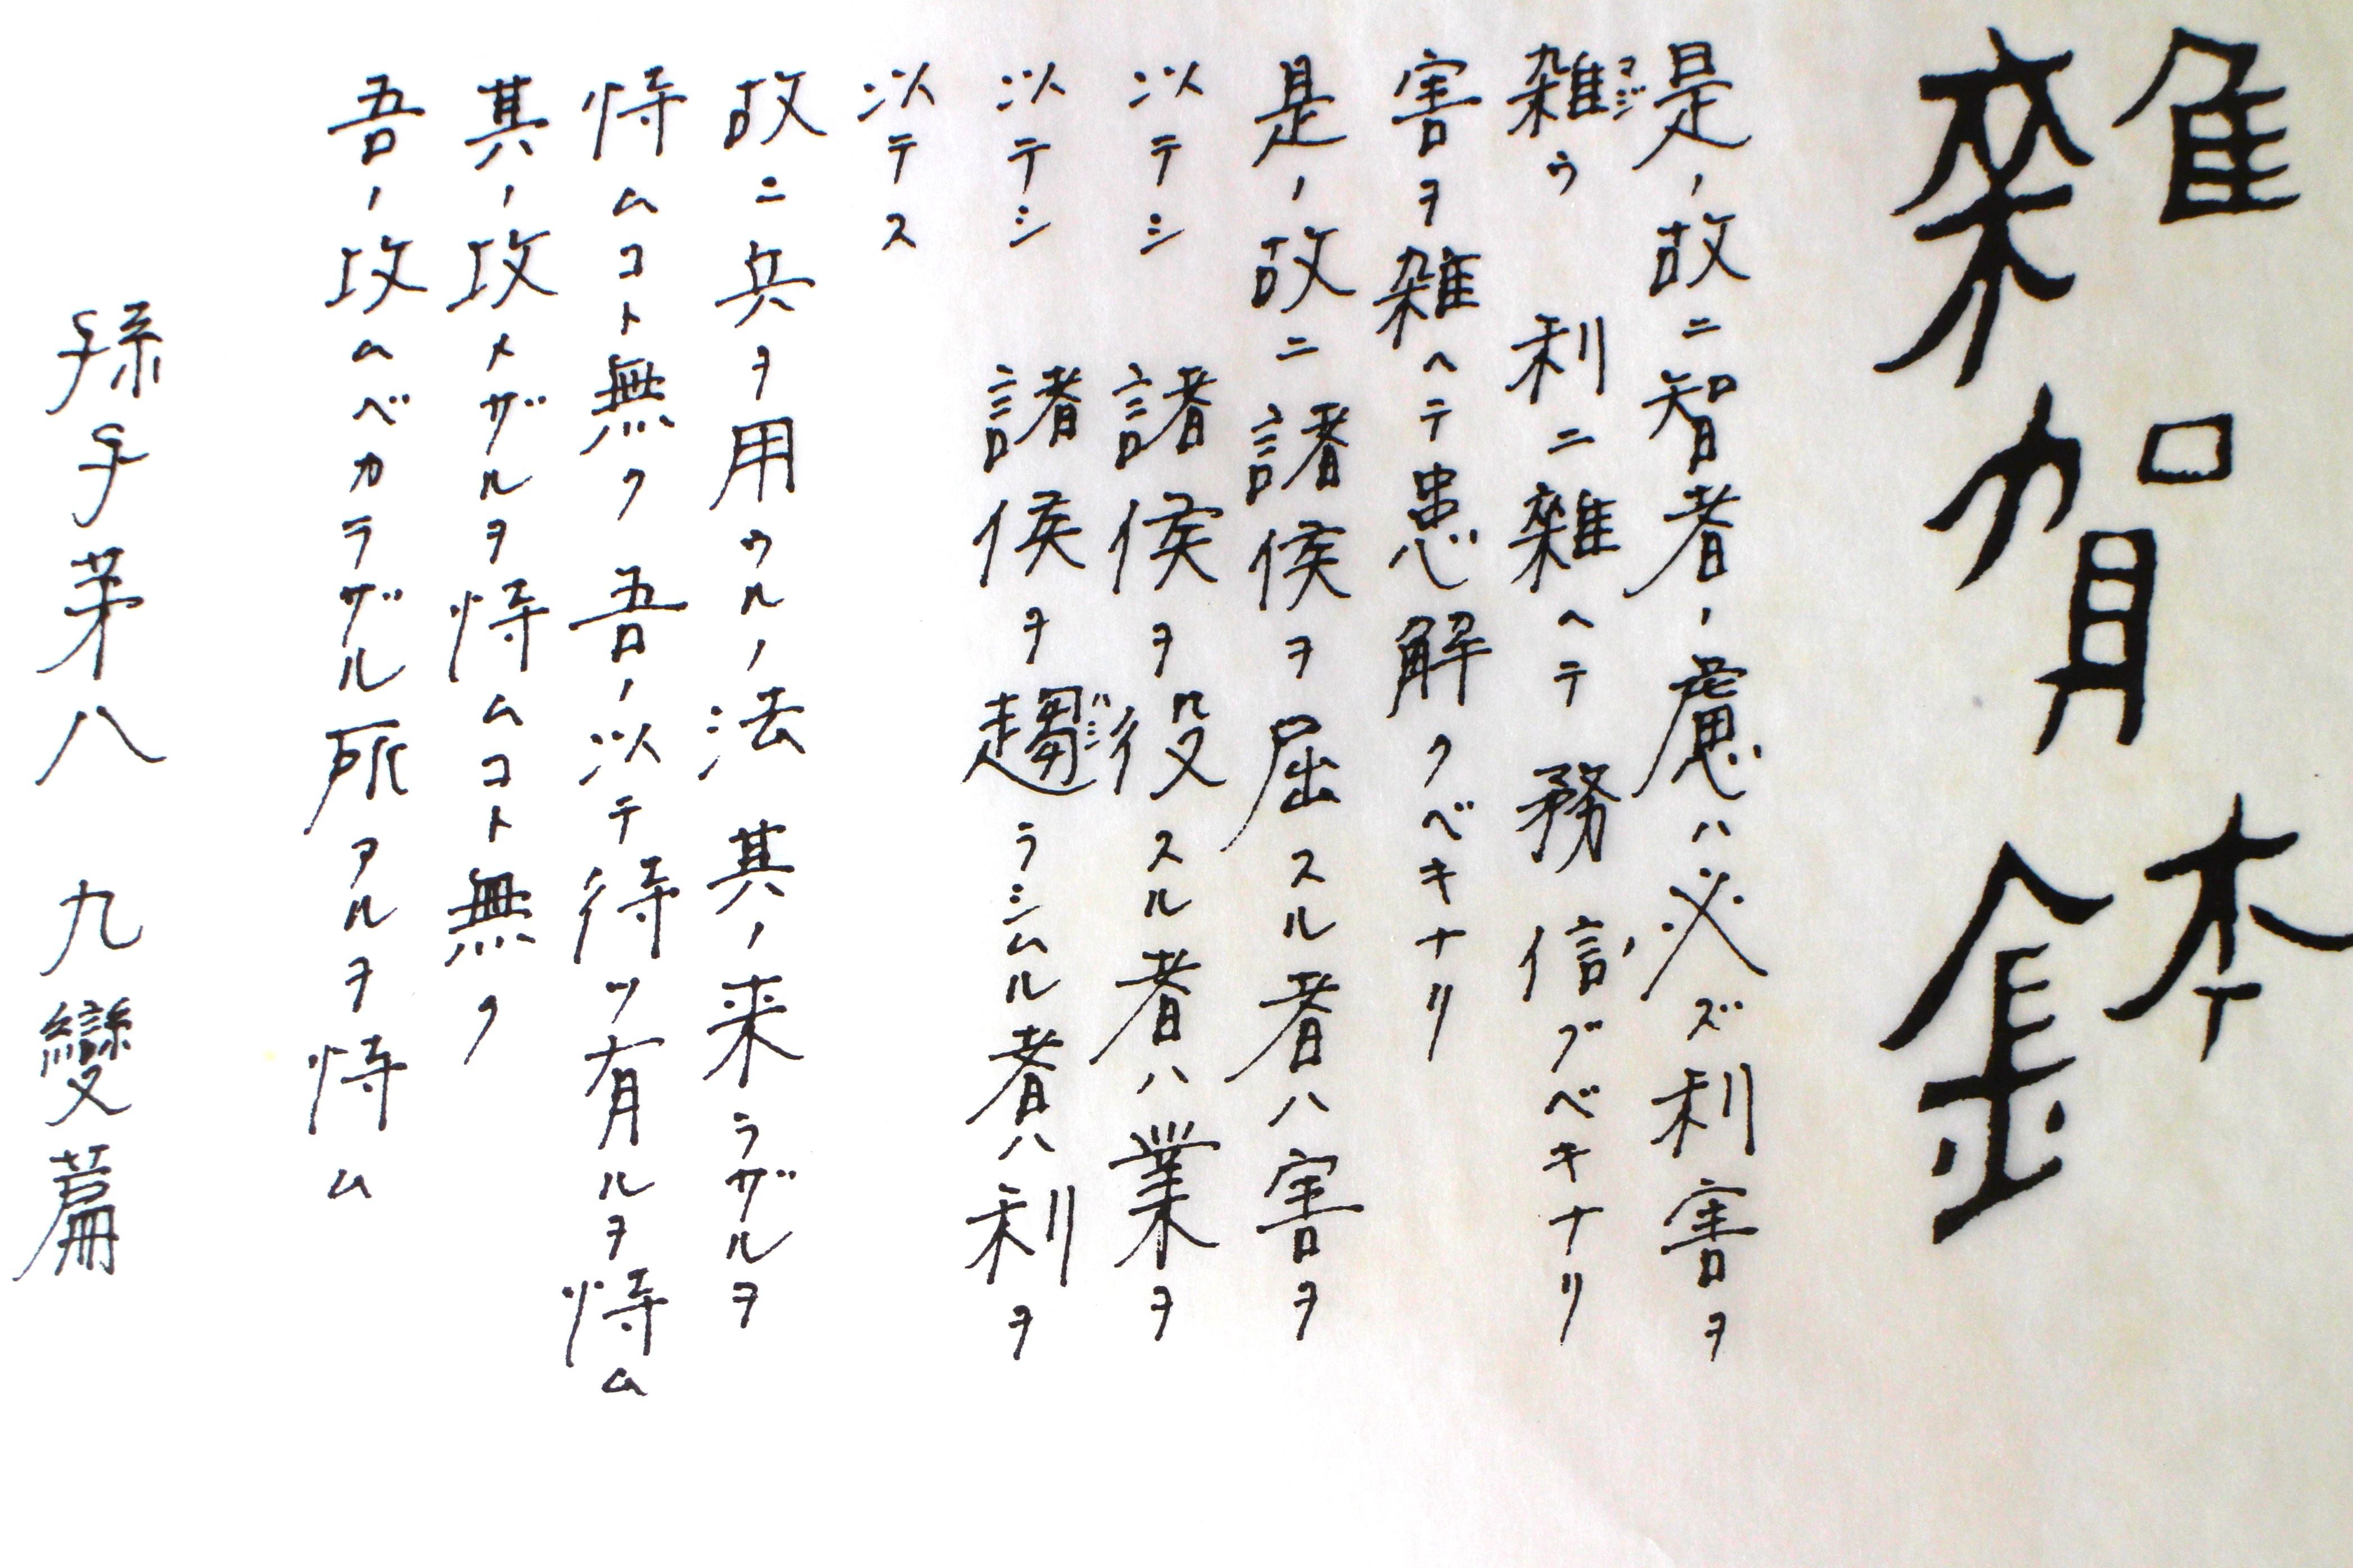 雜賀鉢
是ノ故ニ智者ノ慮ハ必ズ利害ヲ
雑ウ 利ニ雜ヘテ 務 信ブベキナリ
害ヲ雑ヘテ患解クベキナリ
是ノ故ニ諸侯ヲ屈スル者ハ害ヲ
以テシ 諸侯ヲ役スル者ハ業ヲ
以テシ 諸侯ヲ趨ラシムル者ハ利ヲ
以テス
故ニ兵ヲ用ウルノ法 其ノ来ラザルヲ
恃ムコト無ク 吾ノ以テ待ツ有ルヲ恃ム
其ノ攻メザルヲ恃ムコト無ク
吾ノ攻ムベカラザル所アルヲ恃ム
孫子第八 九變篇